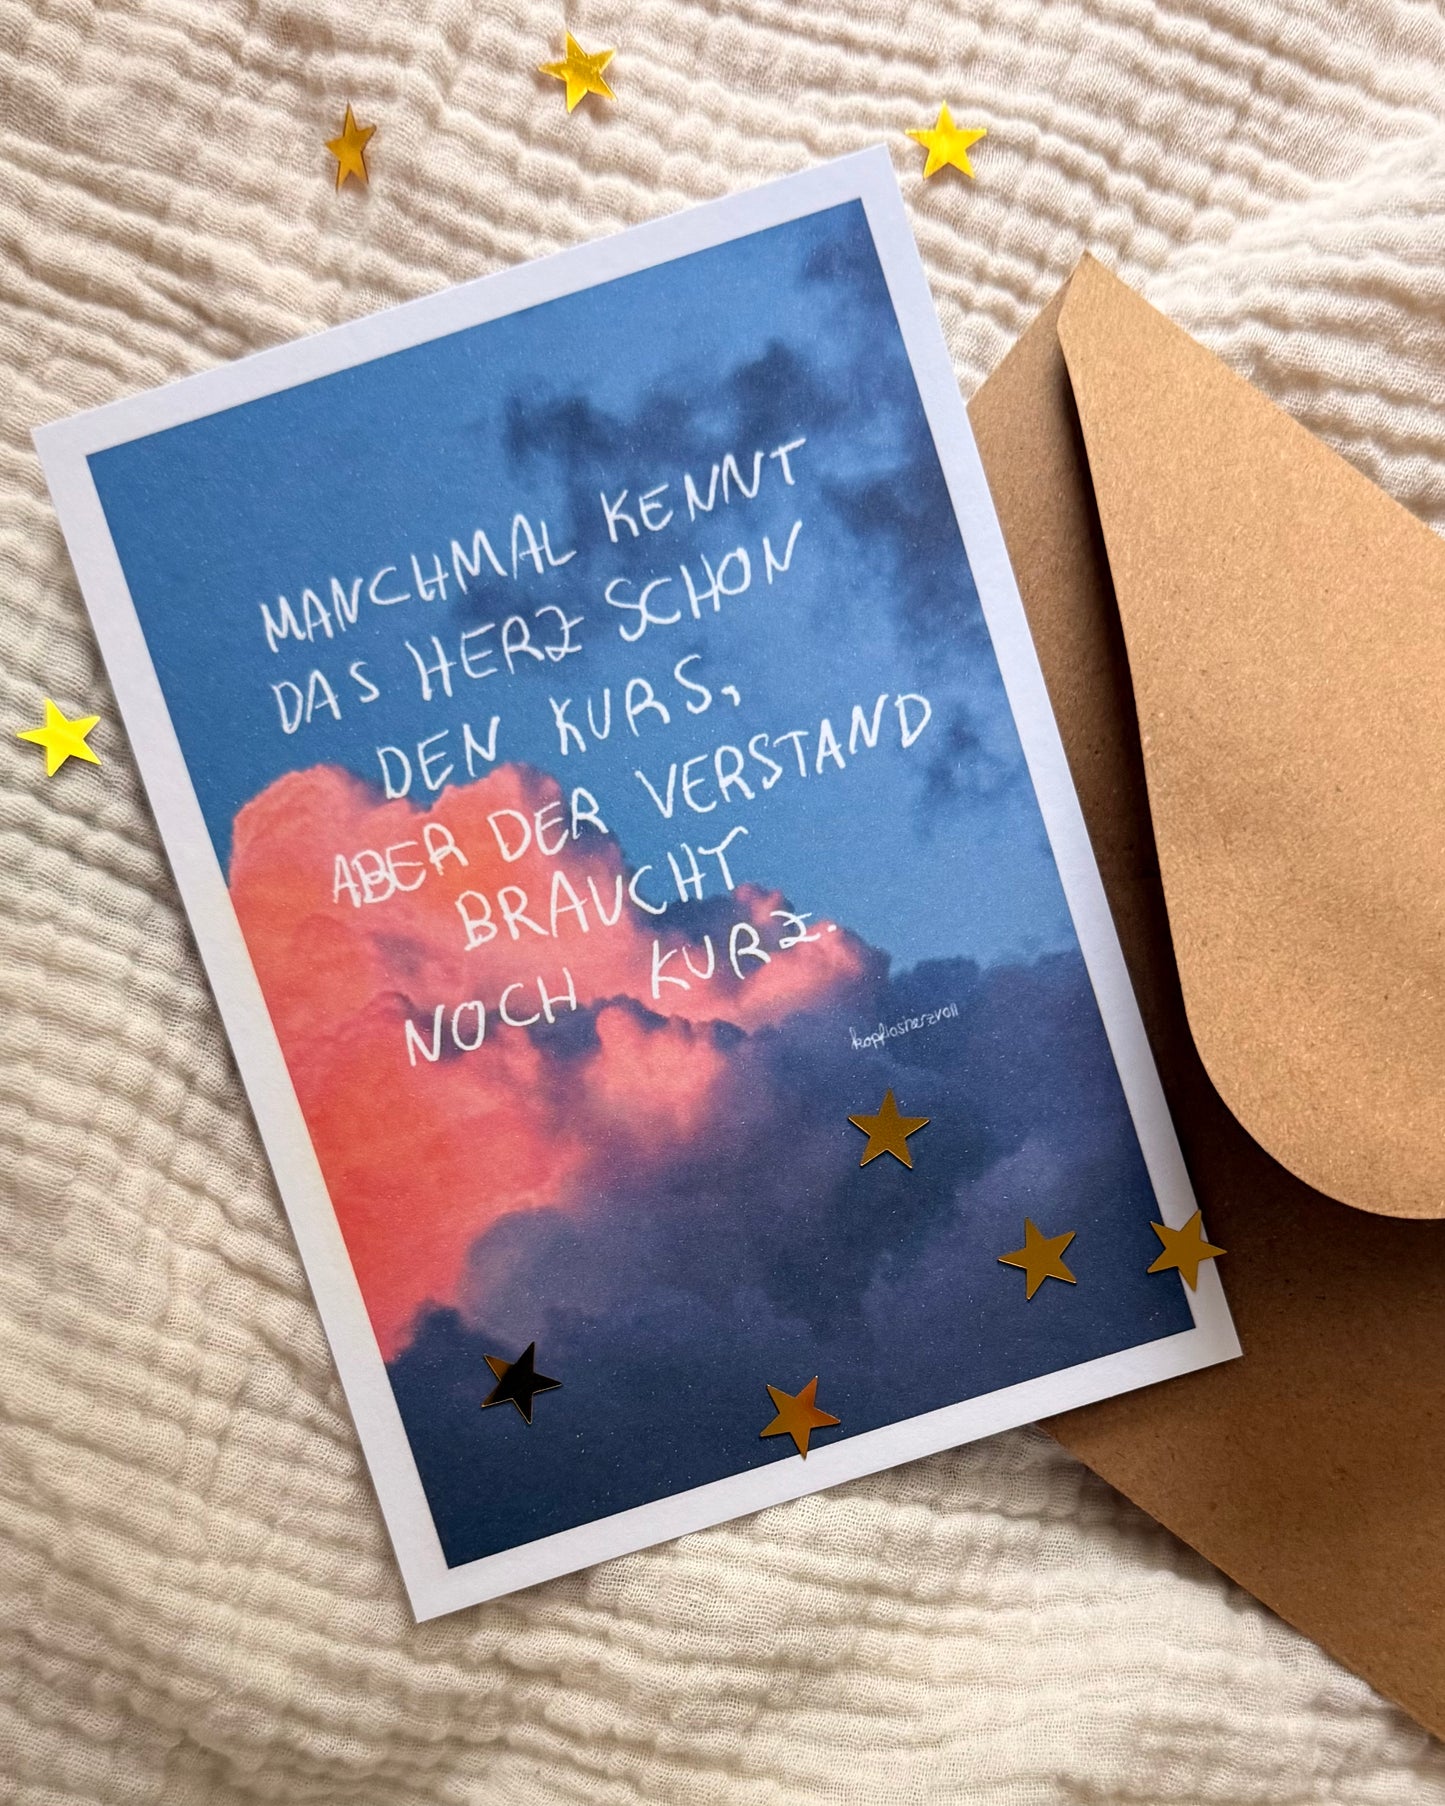 MANCHMAL KENNT
DAS HERZ SCHON
DEN KURS,
ABER DER VERSTAND
BRAUCHT
NOCH KURZ.
kopflosherzvoll